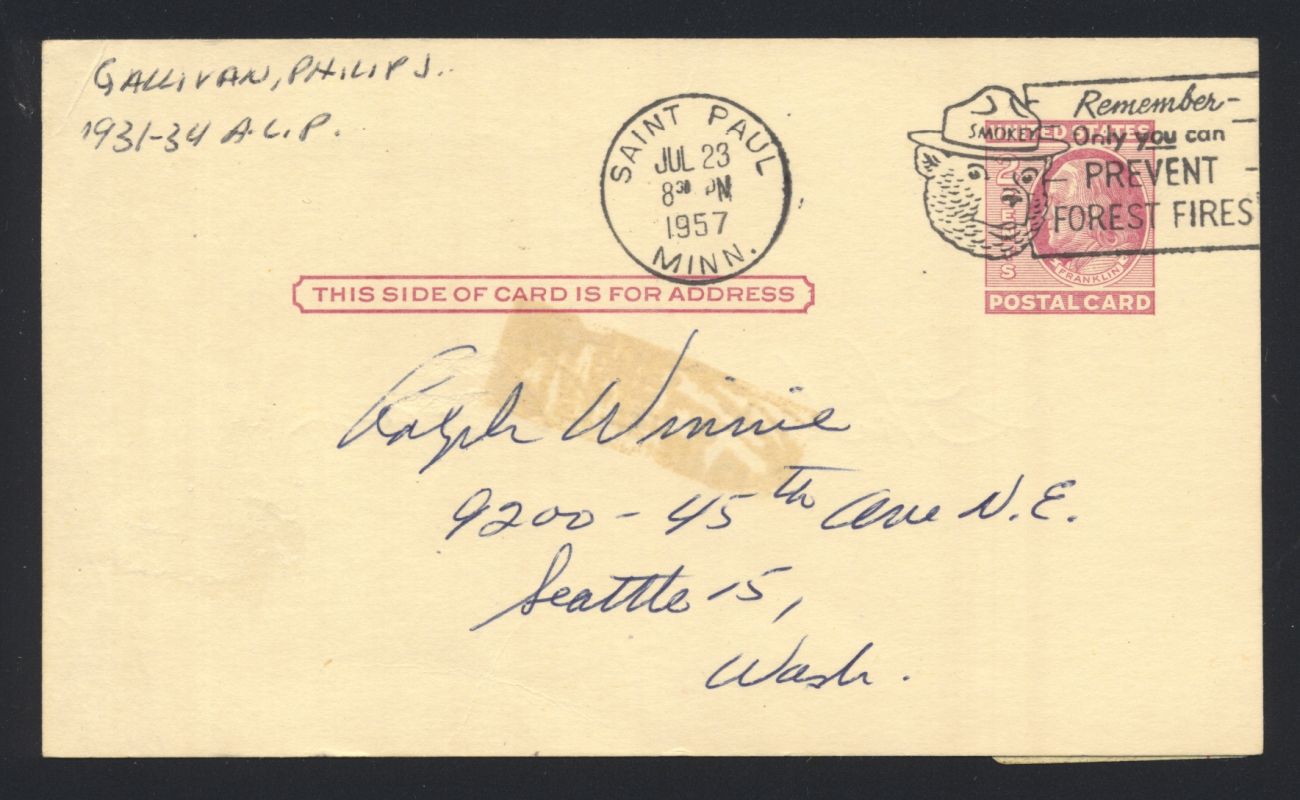 GALLIVAN, PHILIP J.
1931-34 A.L.P.
SAINT PAUL
JUL 23
8 30 PM
1957
MINN.
SMOKEY
Remember-
Only you can
PREVENT
FOREST FIRES
UNITED STATES
2
CENTS
FRANKLIN
POSTAL CARD
THIS SIDE OF CARD IS FOR ADDRESS
Ralph Winnie
9200 - 45th Ave N.E.
Seattle 15,
Wash.